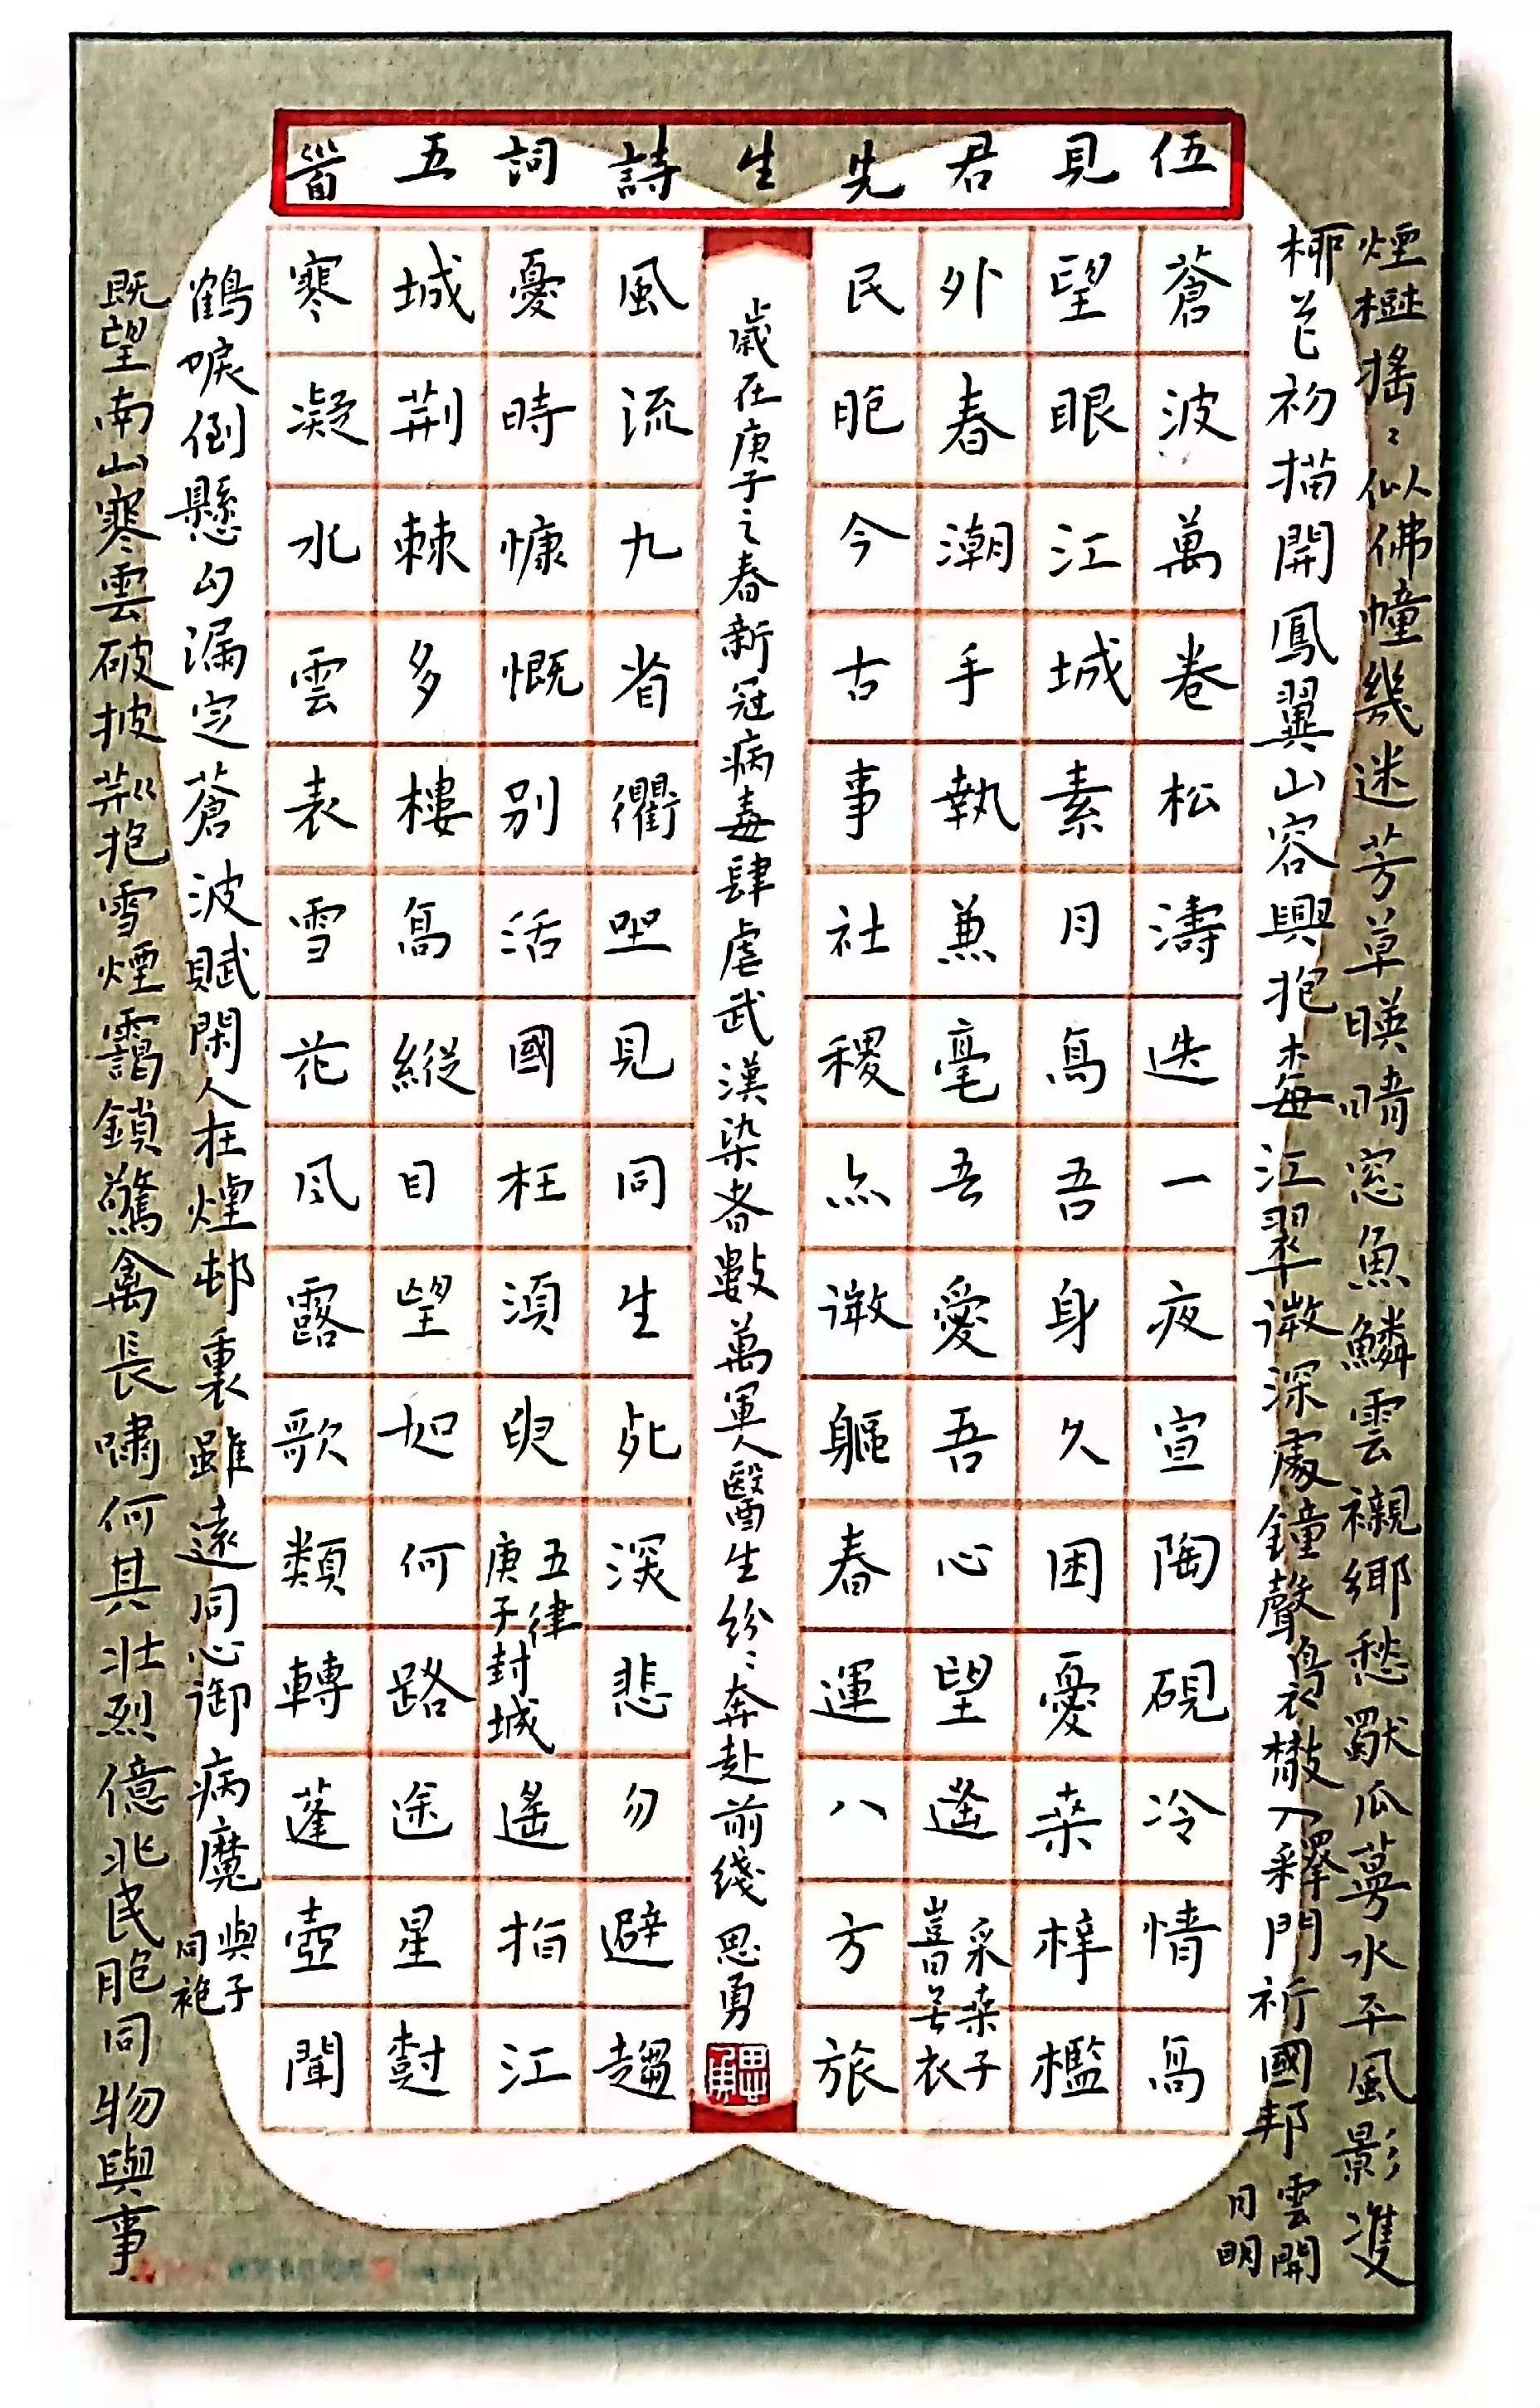 伍見君先生詩詞五首
煙樹搖〻似佛幢幾迷芳草暎晴窓魚鱗雲襯鄉愁獸瓜蔓水平風影雙
柳芒初描開鳳翼山容興抱梅江翠微深處鐘聲裊散入釋門祈國邦
雲開
日明
蒼波萬卷松濤迭一夜宣陶硯冷情高
望眼江城素月鳥吾身久困憂桒梓檻
外春潮手執兼毫吾愛吾心望遙
采桒子
民胞今古事社稷亦微軀春運八方旅
歲在庚子之春新冠病毒肆虐武漢染者數萬軍人醫生紛〻奔赴前綫思勇
風流九省衢坐見同生死深悲勿避趨
憂時慷慨別活國枉須臾
五律
庚子封城
遙指江
城荊棘多樓高縱目望如何路途星對
寒凝水雲表雪花風露歌類轉蓬壺聞
鶴唳倒懸勾漏定蒼波賦閑人在煙邨裏雖遠同心御病魔
與子
同袍
既望南山寒雲破披荊抱雪煙靄鎖驚禽長嘯何其壯烈億兆民胞同物與事